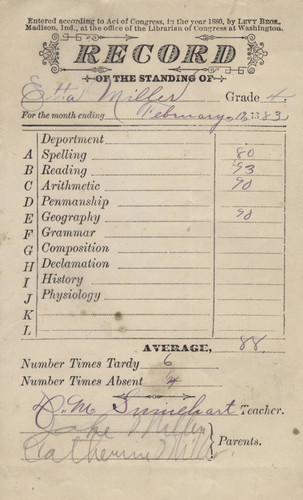 Entered according to Act of Congress, in the year 1880, by LEVY BROS.
Madison, Ind., at the office of the Librarian of Congress at Washington.
RECORD
OF THE STANDING OF
Etta Miller Grade 4
For the month ending February, 1883
Deportment
A Spelling 80
B Reading 93
C Arithmetic 90
D Penmanship
E Geography 90
F Grammar
G Composition
H Declamation
I History
J Physiology
K
L
AVERAGE, 88.
Number Times Tardy 6
Number Times Absent 4
D. M. Teacher.
Miller
Catherine Miller } Parents.